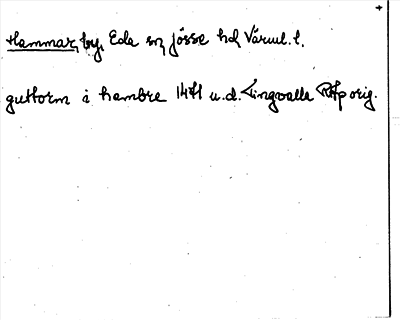 Hammar, by, Eda sn, Jösse hd, Värml. l.
guttorm i hambre 1471 u.d. Tingvalla RAp orig.